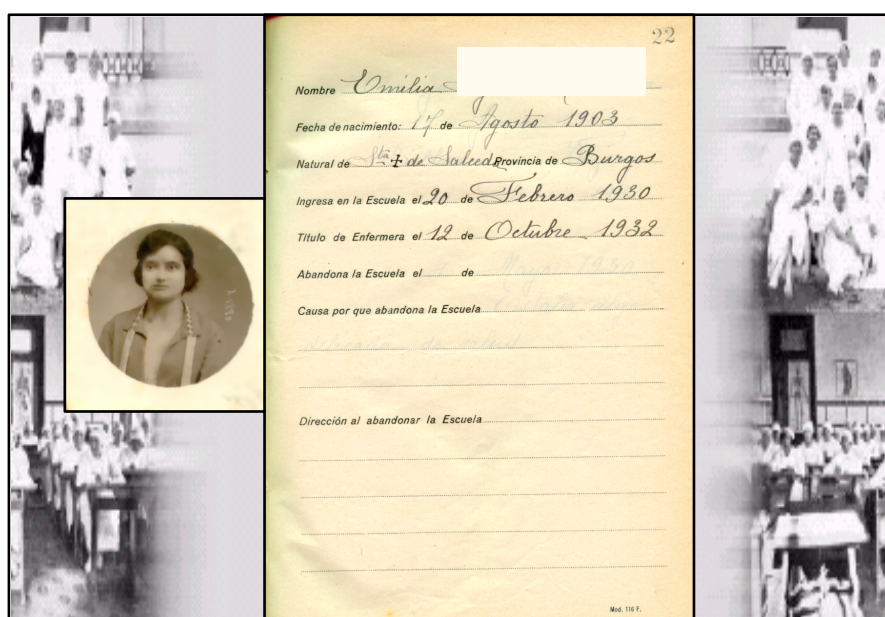 22
Nombre Emilia
Fecha de nacimiento: 17 de Agosto 1903
Natural de Sta + de Salcedo Provincia de Burgos
Ingresa en la Escuela el 20 de Febrero 1930
Título de Enfermera el 12 de Octubre 1932
Abandona la Escuela el de Mayo 1930
Causa por que abandona la Escuela
delicada de salud
Dirección al abandonar la Escuela
Mod. 116 F.